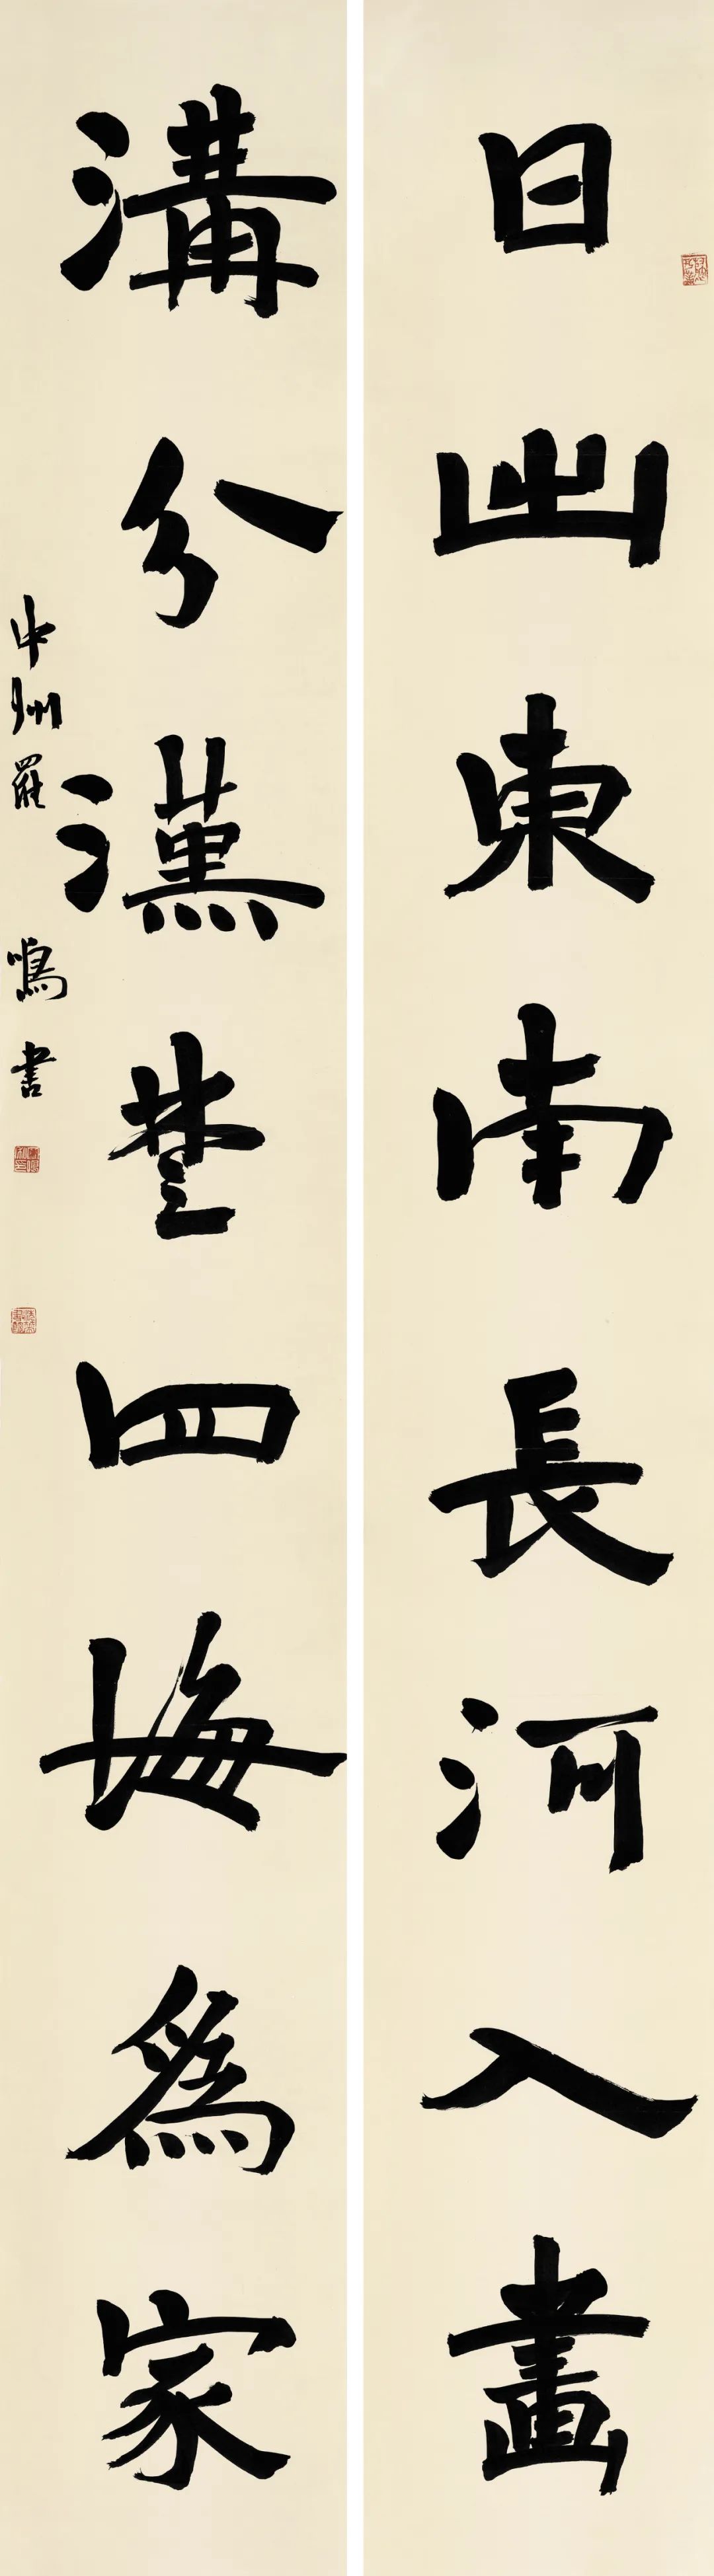 日出東南長河入畫
溝分漢楚四海爲家
中州羅鳴書